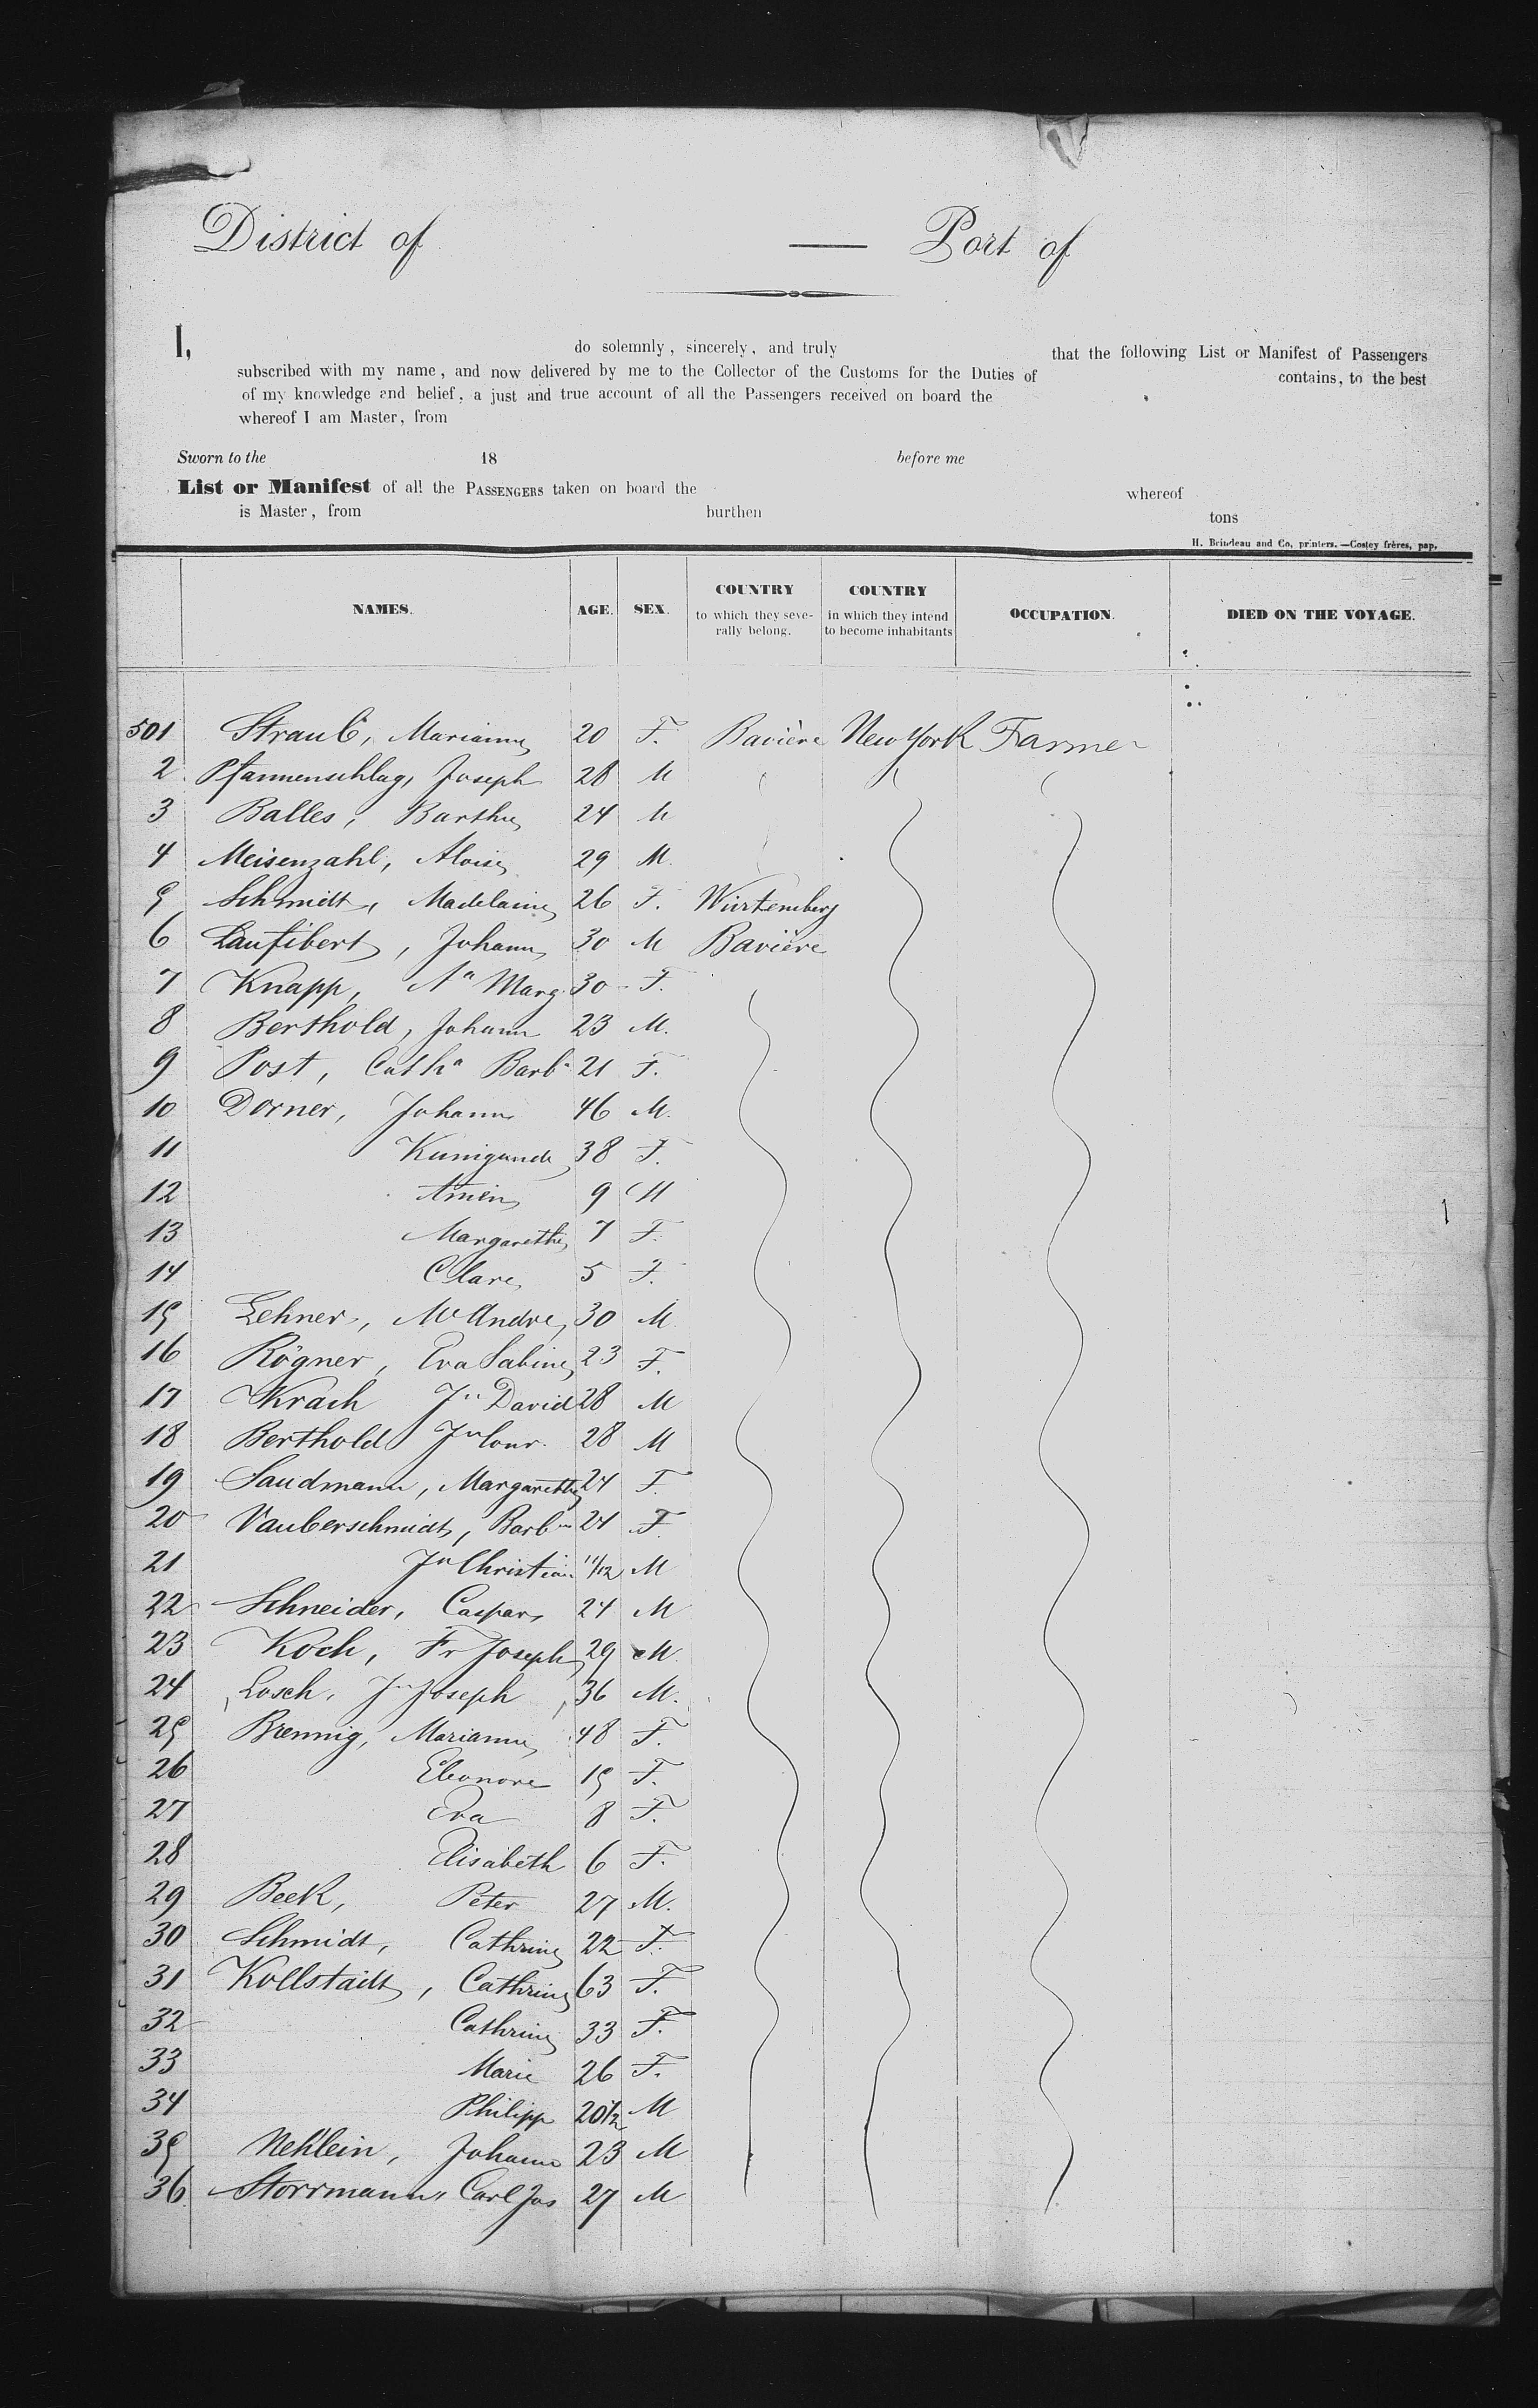 District of — Port of
I, do solemnly, sincerely, and truly that the following List or Manifest of Passengers
subscribed with my name, and now delivered by me to the Collector of the Customs for the Duties of contains, to the best
of my knowledge and belief, a just and true account of all the Passengers received on board the
whereof I am Master, from
Sworn to the 18 before me
List or Manifest of all the PASSENGERS taken on board the whereof
is Master, from burthen tons
H. Brindeau and Co, printers. —Costey frères, pap.
NAMES. AGE. SEX. COUNTRY to which they severally belong. COUNTRY in which they intend to become inhabitants OCCUPATION. DIED ON THE VOYAGE.
501 Straub, Marianne 20 F. Bavière New York Farmer
2 Pfannenschlag, Joseph 28 M
3 Balles, Barthe 24 M
4 Meisenzahl, Aloise 29 M.
5 Schmidt, Madelaine 26 F. Würtemberg
6 Laufibert, Johann 30 M Bavière
7 Knapp, Aª Marg. 30 F.
8 Berthold, Johann 23 M.
9 Post, Cathª Barbª 21 F.
10 Dorner, Johann 46 M.
11 Kunigunde 38 F.
12 9 M
13 Margarethe 7 F.
14 Clare 5 F.
15 Lehner, Andre 30 M.
16 Rögner, Eva Sabine 23 F.
17 Krach Jn David 28 M
18 Berthold Jn Conr. 28 M
19 Saudmann, Margarethe 24 F.
20 Vauberschmidt, Barbª 24 F.
21 Jn Christian 11/12 M
22 Schneider, Caspar 24 M
23 Koch, Fr Joseph 29 M.
24 Losch, Jn Joseph 36 M.
25 Brennig, Marianne 48 F.
26 Eleonore 15 F.
27 Eva 8 F.
28 Elisabeth 6 F.
29 Beek, Peter 27 M.
30 Schmidt, Cathrine 22 F.
31 Kollstadt, Cathrine 63 F.
32 Cathrine 33 F.
33 Marie 26 F.
34 Philipp 20 1/2 M
35 Nehlein, Johann 23 M
36 Storrmann, Carl Jos 27 M